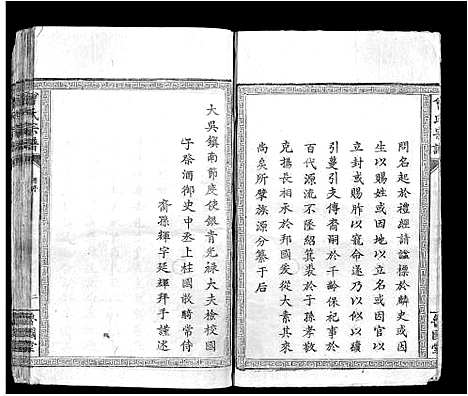 問名起於禮經請謚標於麟史或因
生以賜姓或因地以立名或因官以
立封或賜胙以寵命遂乃以似以續
引蔓引支傳裔嗣於千齡保祀事於
百代源流不墜紹箕裘於子孫孝敬
克揚長相承於邦國爰從大素其來
尚矣所肇族源分纂于后
大吳鎮南節度使銀青光祿大夫檢校國
子祭酒御史中丞上柱國散騎常侍
裔孫輝字延輝拜手謹述
曾氏宗譜